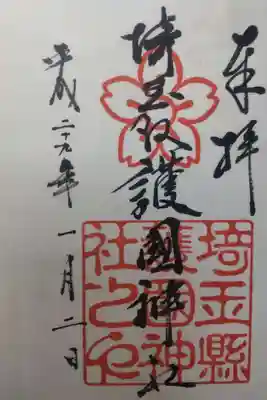 奉拝
埼玉縣護國神社
平成二十九年 一月二日
埼玉縣
護國神
社之印